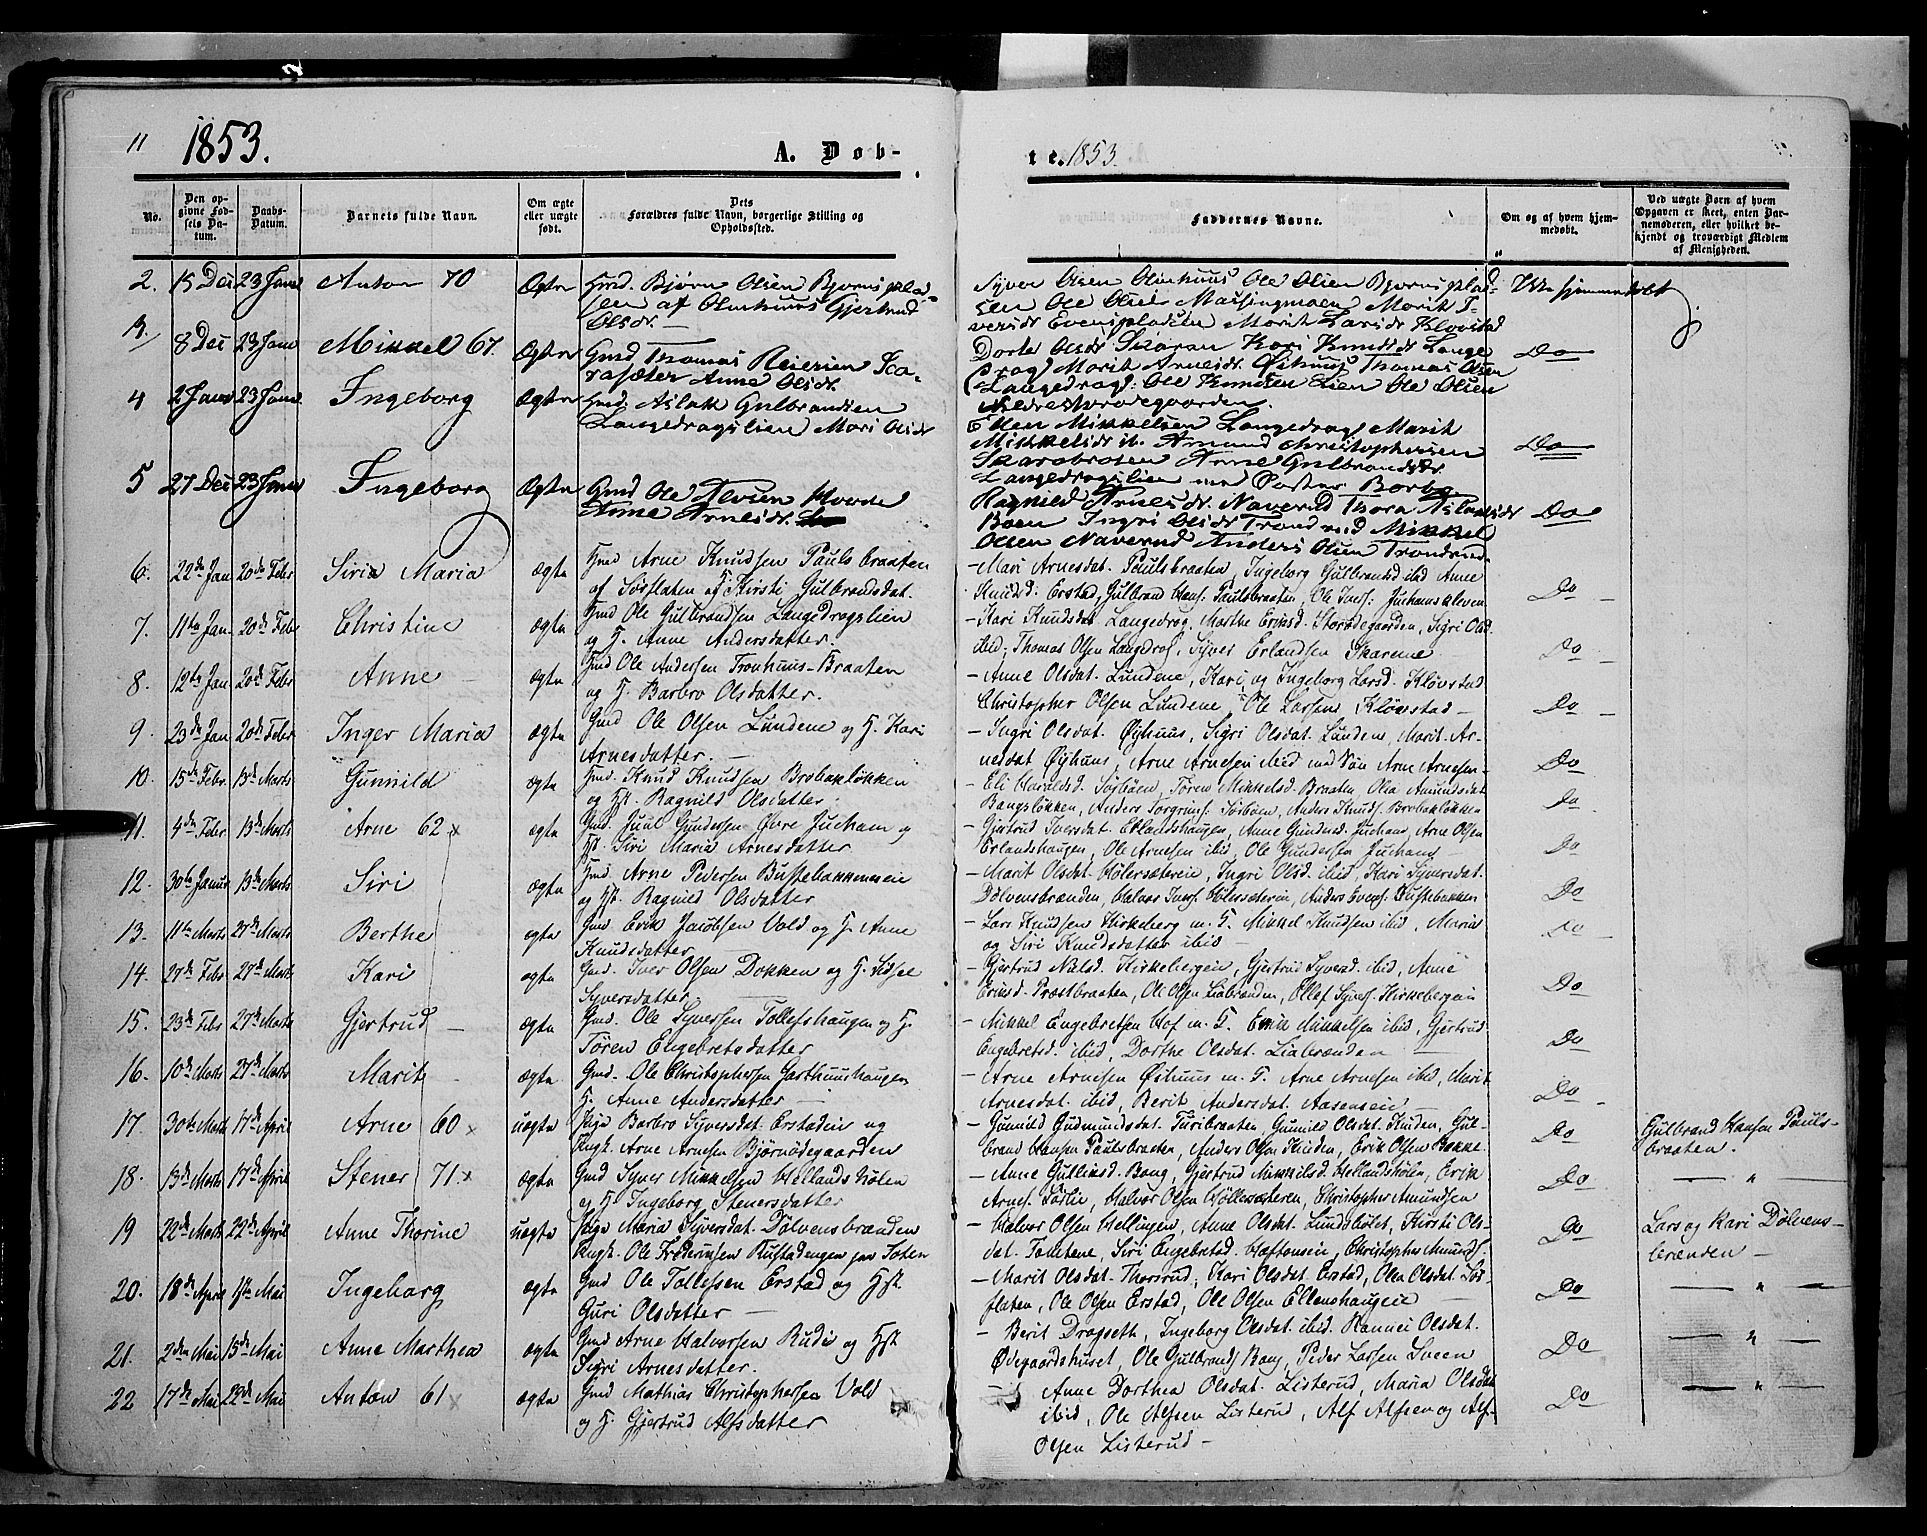 11 1853. A. Döb-
te. 1853.
No. Den opgivne Fødsels Datum. Daabs-Datum. Barnets fulde Navn. Om ægte eller uægte født. Dets Forældres fulde Navn, borgerlige Stilling og Opholdssted.
Faddernes Navne. Om og af hvem hjemmedøbt. Ved uægte Børn af hvem Opgaven er skeet, enten Barnemoderen, eller hvilket bekjendt og troværdigt Medlem af Menigheden.
2. 15 Dec 23 Janu Anton 70 Ægte Hmd. Bjørn Olsen Bjørnsplad-
sen af Olmhuus Gjertrud
Olsdr. —
Syver Olsen Olmhuus Ole Olsen Bjørnsplad- Ikke hjemmedøbt
sen Ole Olsen Maisingmoen Marit I-
versdr Evenspladsen Marit Larsdr Klovstad
3. 8 Dec 23 Janu Mikkel 67. Ægte Gmd Thomas Reiersen Sca-
rasæter Anne Olsdr.
Dorte Olsdr Skaran Kari Knudsdr Lange Do
drag Marit Arnesdr. Øihuus Thomas Olsen
Langedrag: Ole Knudsen Lien Ole Olsen
Nedrestorødegaarden.
4 2 Janu 23 Janu Ingeborg Ægte Hmd. Aslak Gulbrandsen
Langedragslien Mari Olsdr
Mikkelsen Langedrag Marit
Mikkelsdr ib. Amund Christophersen Do
Skarabroten Anne Gulbrandsdr.
Langedragslien
5 27 Dec 23 Janu Ingeborg Ægte Gmd Ole Hovde
Anne Arnesdr.
Ragnild Arnesdr. Naverud Thora Aslaksdr Do
Boen Ingri Olsdr Trond Mikkel
Olsen Naverud Anders Olsen Trondrud
6. 22de Jan 20de Febr Siria Maria ægte Hmd Arne Knudsen Paulsbraaten
af Sørflaten og Kirsti Gulbrandsdat.
— Mari Arnesdat. Paulsbraaten, Ingeborg Gulbrandsd ibid Anne
Knudsd. Erstad, Gulbrand Hans. Paulsbraaten, Ole Juchamskleven Do —
7. 11te Jan. 20de Febr Christine ægte Hmd Ole Gulbrandsen Langedragslien
og H. Anne Andersdatter.
— Kari Knudsdat Langedrag, Marthe Eriksd. Storødegaarden, Sigri Olsd.
ibid, Thomas Olsen Langdrag, Syver Erlandsen Skarene Do —
8. 12te Jan 20de Febr Anne — ægte Hmd Ole Andersen Tronhuus-Braaten
og H. Barbro Olsdatter.
— Anne Olsdat. Lundene, Kari og Ingeborg Larsd. Kløvstad
Christopher Olsen Lundene, Ole Larsens Kløvstad — Do —
9. 23de Jan 20de Febr Inger Maria ægte Gmd Ole Olsen Lundene og H. Kari
Arnesdatter. —
— Ingri Olsdat. Øyhuus, Sigri Olsdat. Lundene, Marit Ar-
nesdat Øyhuus, Arne Arnesen ibid med Søn Arne Arnesen — Do
10. 15de Febr. 13de Marts Gunnild ægte Hmd. Knud Knudsen Brobakløkken
og Hst. Ragnild Olsdatter.
— Eli Haraldsd. Sørbøen, Tøren Mikkelsd. Braaten, Olia Amundsdat
Bangsløkken, Anders Torgrims. Sørbøen, Anders Knuds. Brobakløkken Do
11. 4de Febr 13de Marts Arne 62 x ægte Gmd. Juul Gundersen Øvre Jucham og
Hst. Siri Maria Arnesdatter
— Gjertrud Iversdat. Erlandshaugen, Anne Gundersd. Jucham, Arne Olsen
Erlandshaugen, Ole Arnesen ibid, Ole Gundersen Jucham — Do
12. 30te Januar 13de Marts Siri ægte Hmd. Arne Pedersen Buttebakkeneie
og Hst. Ragnild Olsdatter
— Marit Olsdat. Hølersætereie, Ingri Olsd. ibid, Kari Syversdat.
Dølvensbrænden, Halvor Hølersæterein, Anders Evens. Buttebakken Do
13. 11te Marts 27de Marts Berthe ægte Gmd Erik Jacobsen Vold og H. Anne
Knudsdatter
— Lars Knudsen Kirkeberg m. H. Mikkel Knudsen ibid, Maria
og Siri Knudsdatter ibid — Do
14. 27de Febr 27de Marts Kari ægte Gmd. Iver Olsen Dokken og H. Sidsel
Syversdatter
— Gjertrud Nilsd. Kirkebergein, Gjertrud Syversd. ibid, Anne
Eriksd. Præstbraaten, Ole Olsen Liabrænden, Ellef Syvers. Kirkebergein Do
15. 23de Febr 27de Marts Gjertrud — ægte Gmd. Ole Syversen Tollefshaugen og H.
Tøren Engebretsdatter
— Mikkel Engebretsen Hof m. H. Erik Mikkelsen ibid, Gjertrud
Engebretsd. ibid, Dorthe Olsdat. Liabrænden — Do
16. 10de Marts 27de Marts Marit — ægte Gmd. Ole Christophersen Garthuushaugen
H. Anne Andersdatter —
— Arne Arnesen Øihuus m. H. Arne Arnesen ibid, Marit
Arnesdat. ibid, Berit Andersdat. Aasenseie — Do —
17. 30te Marts 17de April Arne 60 x uægte Pige Barbro Syversdat. Erstadeie og
Ungk. Arne Arnesen Bjørnødegaarden
— Gunild Gudmundsdat. Turibraaten, Gunild Olsdat. Kinden, Gul-
brand Hansen Paulsbraaten, Anders Olsen Kinden, Erik Olsen Bakke. Do Gulbrand Hansen Pauls-
braaten.
18. 13de Marts 17de April Stener 71 x ægte Gmd Syver Mikkelsen Hellandshølen
og H. Ingeborg Stenersdatter
— Anne Gulliksd. Bang, Gjertrud Mikkelsd. Hellandshølen, Erik
Arnes. Førlie, Halvor Olsen Høllersæteren, Christopher Amundsen Do — " —
19 22de Marts 22de April Anne Thorine uægte Pige Maria Syversdat. Dølvensbrænden
Ungk. Ole Frederiksen Rustadengen paa Toten
— Halvor Olsen Hellingen, Anne Olsdat. Lundsbølet, Kirsti Ols-
dat. Tomtene, Siri Engebretsd. Haftonseie, Christopher Amunds. Do Lars og Kari Dølvens-
brenden —
20. 18de April 1ste Mai Ingeborg ægte Gmd Ole Tollefsen Erstad og Hst.
Guri Olsdatter —
— Marit Olsdat. Thorsrud, Kari Olsdat. Erstad, Olea Olsdat. Sør-
flaten, Ole Olsen Erstad, Ole Olsen Ellenshaugeie — Do — " —
21. 2den Mai 15de Mai Anne Marthea ægte Gmd Arne Halvorsen Rudi og Hst
Sigri Arnesdatter.
— Berit Dragseth, Ingeborg Olsdat. ibid. Rannei Olsdat.
Ødegaardshuset, Ole Gulbrands. Bang, Peder Larsen Sveen Do — " —
22 17de Mai 22de Mai Anton 61 x ægte Gmd Mathias Christophersen Vold
og H. Gjertrud Alfsdatter
— Anne Dorthea Olsdat. Listerud, Maria Olsdat
ibid, Ole Alfsen Listerud, Alf Alfsen og Alf Do — " —
Olsen Listerud —